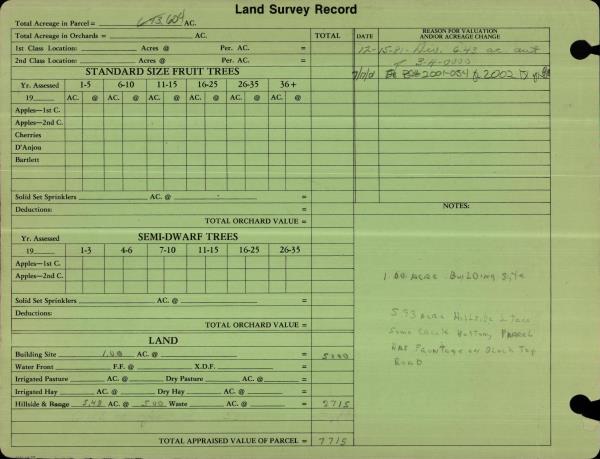 Land Survey Record
Total Acreage in Parcel = AC.
Total Acreage in Orchards = AC. TOTAL
1st Class Location: Acres @ Per. AC. =
2nd Class Location: Acres @ Per. AC. =
STANDARD SIZE FRUIT TREES
Yr. Assessed 1-5 6-10 11-15 16-25 26-35 36+
19 AC. @ AC. @ AC. @ AC. @ AC. @ AC. @
Apples—1st C.
Apples—2nd C.
Cherries
D'Anjou
Bartlett
Solid Set Sprinklers AC. @ =
Deductions: =
TOTAL ORCHARD VALUE =
SEMI-DWARF TREES
Yr. Assessed 1-3 4-6 7-10 11-15 16-25 26-35
19 AC. @ AC. @ AC. @ AC. @ AC. @ AC. @
Apples—1st C.
Apples—2nd C.
Solid Set Sprinklers AC. @ =
Deductions:
TOTAL ORCHARD VALUE =
LAND
Building Site 1.00 AC. @ = 5000
Water Front F.F. @ X.D.F. =
Irrigated Pasture AC. @ Dry Pasture AC. @ =
Irrigated Hay AC. @ Dry Hay AC. @ =
Hillside & Range AC. @ 500 Waste AC. @ = 2715
TOTAL APPRAISED VALUE OF PARCEL = 7715
DATE REASON FOR VALUATION
AND/OR ACREAGE CHANGE
12-15-81 - 6.43 ac out
of 3-4-0000
2001-054 2002
NOTES:
1.00 ACRE BUILDING SITE
5.93 ACRE HILLSIDE
SOME CREEK BOTTOM, PARCEL
HAS FRONTAGE ON BLACK TOP
ROAD